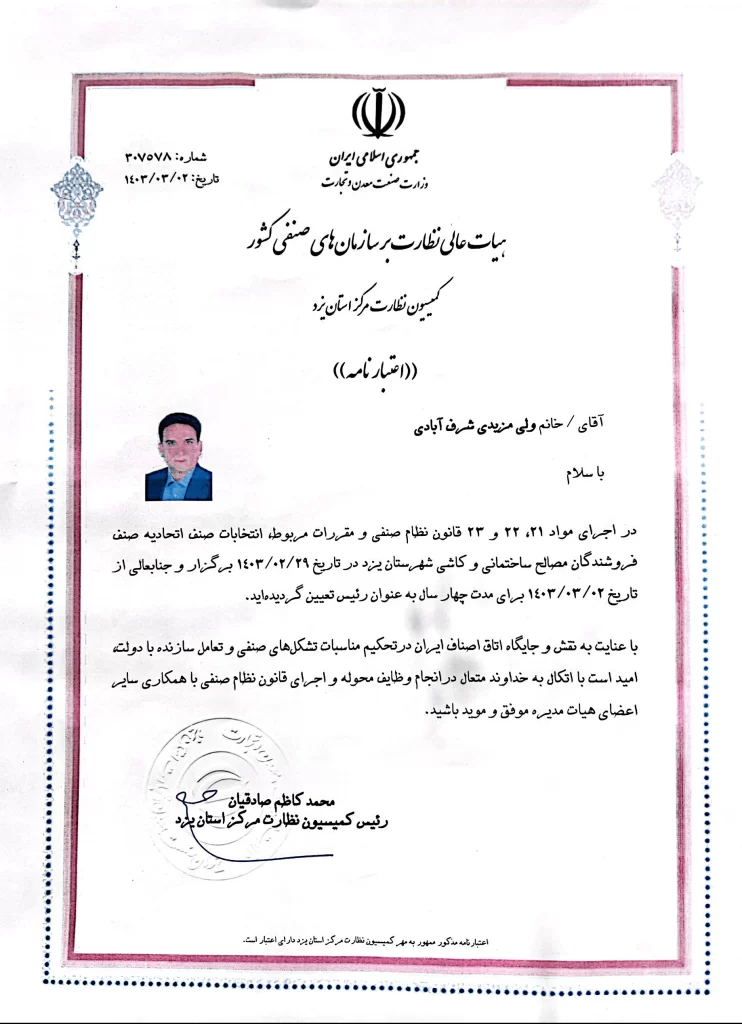 جمهوری اسلامی ایران
وزارت صنعت معدن و تجارت
شماره: ۳۰۷۵۷۸
تاریخ: ۱۴۰۳/۰۳/۰۲
هیات عالی نظارت بر سازمان های صنفی کشور
کمیسیون نظارت مرکز استان یزد
((اعتبار نامه))
آقای / خانم ولی مزیدی شرف آبادی
با سلام
در اجرای مواد ۲۱، ۲۲ و ۲۳ قانون نظام صنفی و مقررات مربوط، انتخابات صنف اتحادیه صنف
فروشندگان مصالح ساختمانی و کاشی شهرستان یزد در تاریخ ۱۴۰۳/۰۲/۲۹ برگزار و جنابعالی از
تاریخ ۱۴۰۳/۰۳/۰۲ برای مدت چهار سال به عنوان رئیس تعیین گردیده‌اید.
با عنایت به نقش و جایگاه اتاق اصناف ایران درتحکیم مناسبات تشکل‌های صنفی و تعامل سازنده با دولت،
امید است با اتکال به خداوند متعال درانجام وظایف محوله و اجرای قانون نظام صنفی با همکاری سایر
اعضای هیات مدیره موفق و موید باشید.
محمد کاظم صادقیان
رئیس کمیسیون نظارت مرکز استان یزد
اعتبارنامه مذکور ممهور به مهر کمیسیون نظارت مرکز استان یزد دارای اعتبار است.